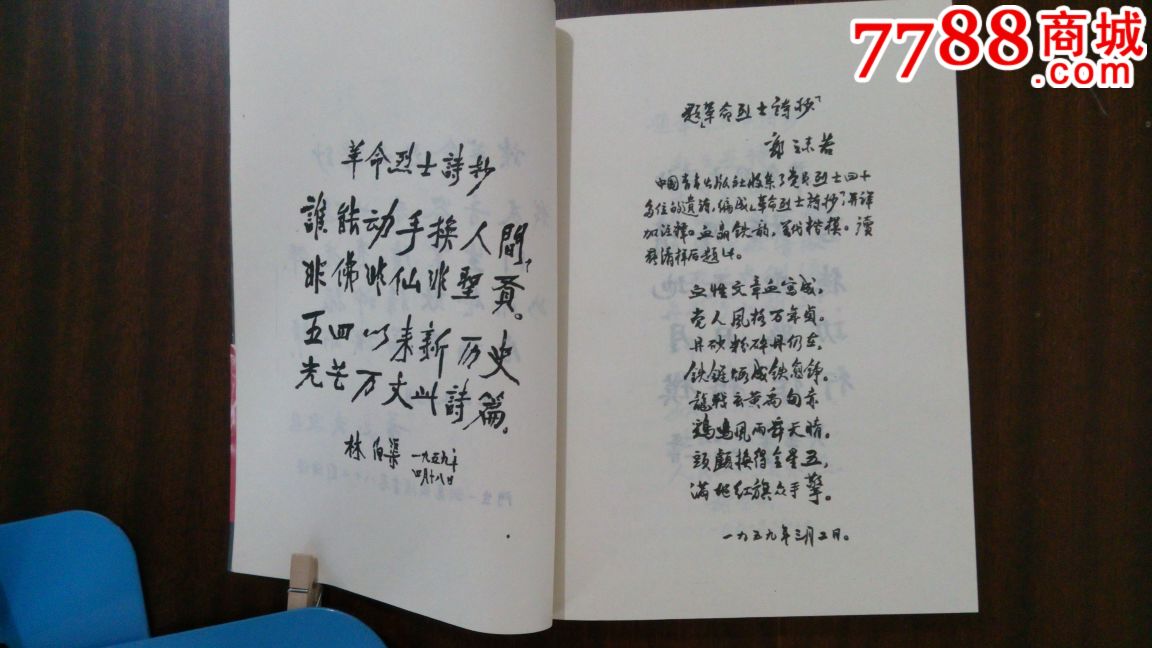 革命烈士詩抄
誰能动手換人間，
非佛非仙非聖賢。
五四以来新历史
光芒万丈此詩篇。
林伯渠
一九五九年
四月十八日
题「革命烈士詩抄」
郭沫若
中国青年出版社收集了党员烈士四十
多位的遺詩，编成「革命烈士詩抄」，并詳
加注释。血晶铁韵，万代楷模。讀
清样后题此。
血性文章血寫成，
党人風格万年貞。
丹砂粉碎丹仍在，
铁鏈
龍戰玄黄
鷄鳴風雨
頭顱換得金星五，
满地红旗众手擎。
一九五九年三月五日。
7788商城
.com